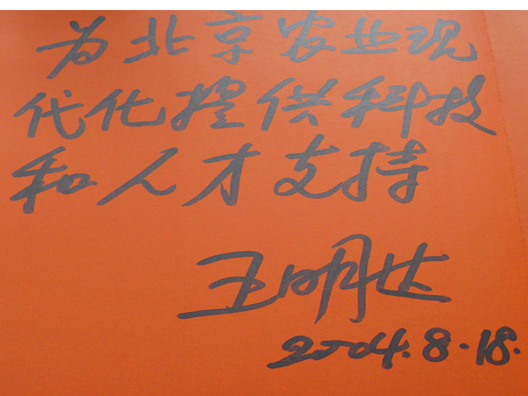 为北京农业现
代化提供科技
和人才支持
王明达
2004.8.18.